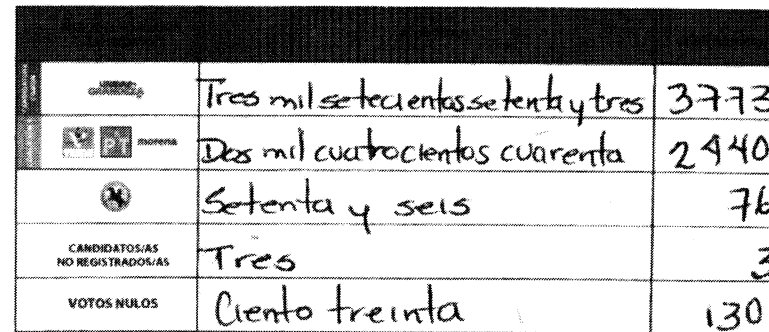 Tres mil setecientos setenta y tres 3773
PT morena Dos mil cuatrocientos cuarenta 2440
Setenta y seis 76
CANDIDATOS/AS
NO REGISTRADOS/AS Tres 3
VOTOS NULOS Ciento treinta 130